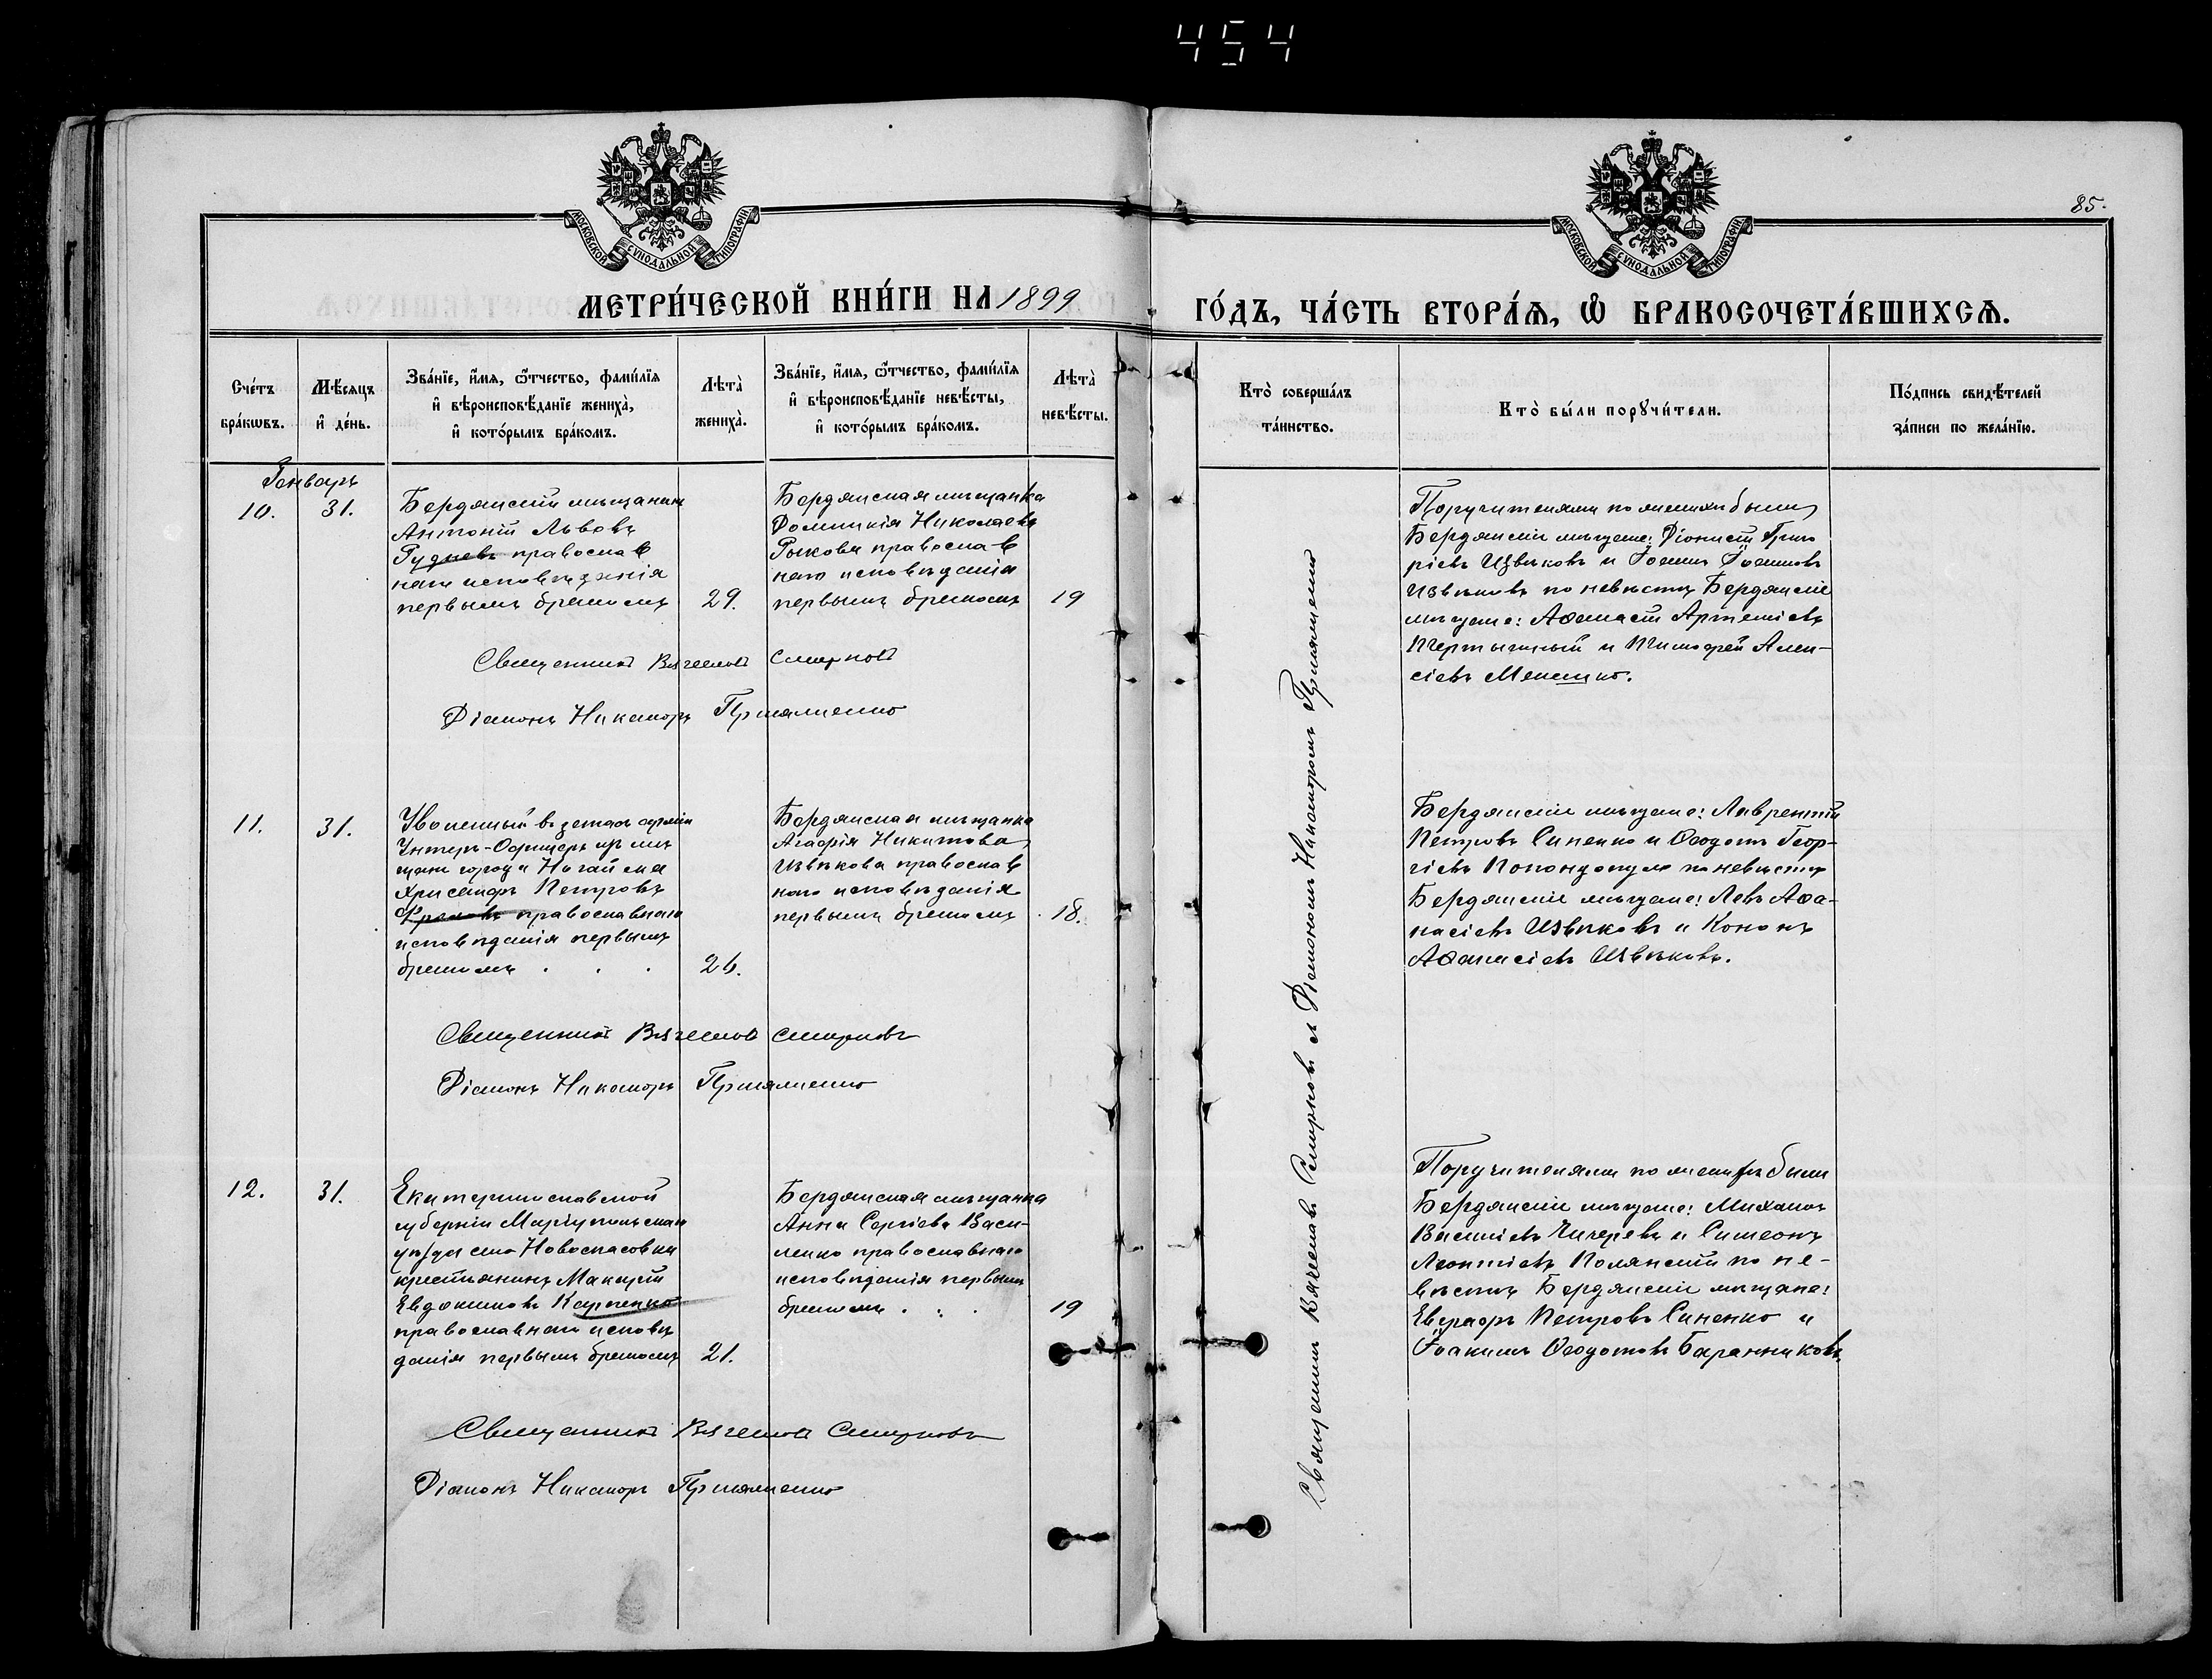 454
МОСКОВСКОЙ СУНОДАЛЬНОЙ ТИПОГРАФІИ.
МОСКОВСКОЙ СУНОДАЛЬНОЙ ТИПОГРАФІИ.
85.
МЕТРИ́ЧЕСКОЙ КНИ́ГИ НА 1899
ГО́ДЪ, ЧА́СТЬ ВТОРА́Ѧ, Ѽ БРАКОСОЧЕТА́ВШИХСѦ.
Сче́тъ
бра́кѡвъ.
Мѣ́сяцъ
и҆ де́нь.
Зва́нїе, и҆́мѧ, ѻ҆́тчество, фами́лїѧ
и҆ вѣроисповѣ́данїе жениха̀,
и҆ кото́рымъ бра́комъ.
Лѣта̀
жениха̀.
Зва́нїе, и҆́мѧ, ѻ҆́тчество, фами́лїѧ
и҆ вѣроисповѣ́данїе невѣ́сты,
и҆ кото́рымъ бра́комъ.
Лѣта̀
невѣ́сты.
Кто̀ соверша́лъ
та́инство.
Кто̀ бы́ли порꙋчи́тели.
По́дпись свидѣ́телей
за́писи по жела́нїю.
Январь
10.
31.
Бердянскій мѣщанинъ
Антоній Львовъ
Рудневъ православ
наго исповѣданія
первымъ бракомъ
29.
Бердянская мѣщанка
Домникія Николаева
Рыкова православ
наго исповѣданія
первымъ бракомъ
19
Поручителями по женихѣ были
Бердянскіе мѣщане: Діонисій Григо
ріевъ Извѣковъ и Іоаннъ Іоанновъ
Извѣковъ по невѣстѣ Бердянскіе
мѣщане: Аѳанасій Артеміевъ
и Тимофей Алек-
сіевъ
Священникъ Вячеславъ Смирновъ
Діаконъ Никаноръ
11.
31.
Уволенный въ запасъ арміи
Унтеръ-Офицеръ изъ мѣ
щанъ города Ногайска
Хрисанфъ Петровъ
православнаго
исповѣданія первымъ
бракомъ . . .
26.
Бердянская мѣщанка
Агафія Никитова
Извѣкова православ
наго исповѣданія
первымъ бракомъ
18.
Бердянскіе мѣщане: Лаврентій
Петровъ Синенко и Ѳеодотъ Геор-
гіевъ по невѣстѣ
Бердянскіе мѣщане: Левъ Аѳа-
насіевъ Извѣковъ и Кононъ
Аѳанасіевъ Извѣковъ.
Священникъ Вячеславъ Смирновъ
Діаконъ Никаноръ
12.
31.
Екатеринославской
губерніи Маріупольскаго
уѣзда села Новоспасовки
крестьянинъ Макарій
Евдокимовъ Карпенко
православнаго исповѣ
данія первымъ бракомъ
21.
Бердянская мѣщанка
Анна Сергіева Васи-
ленко православнаго
исповѣданія первымъ
бракомъ . . .
19
Поручителями по женихѣ были
Бердянскіе мѣщане: Михаилъ
Василіевъ Чичеревъ и Симеонъ
Леонтіевъ Полянскій по не-
вѣстѣ Бердянскіе мѣщане:
Евграфъ Петровъ Синенко и
Іоакимъ Ѳеодотовъ Баранниковъ
Священникъ Вячеславъ Смирновъ
Діаконъ Никаноръ
Священникъ Вячеславъ Смирновъ съ Діакономъ Никаноромъ